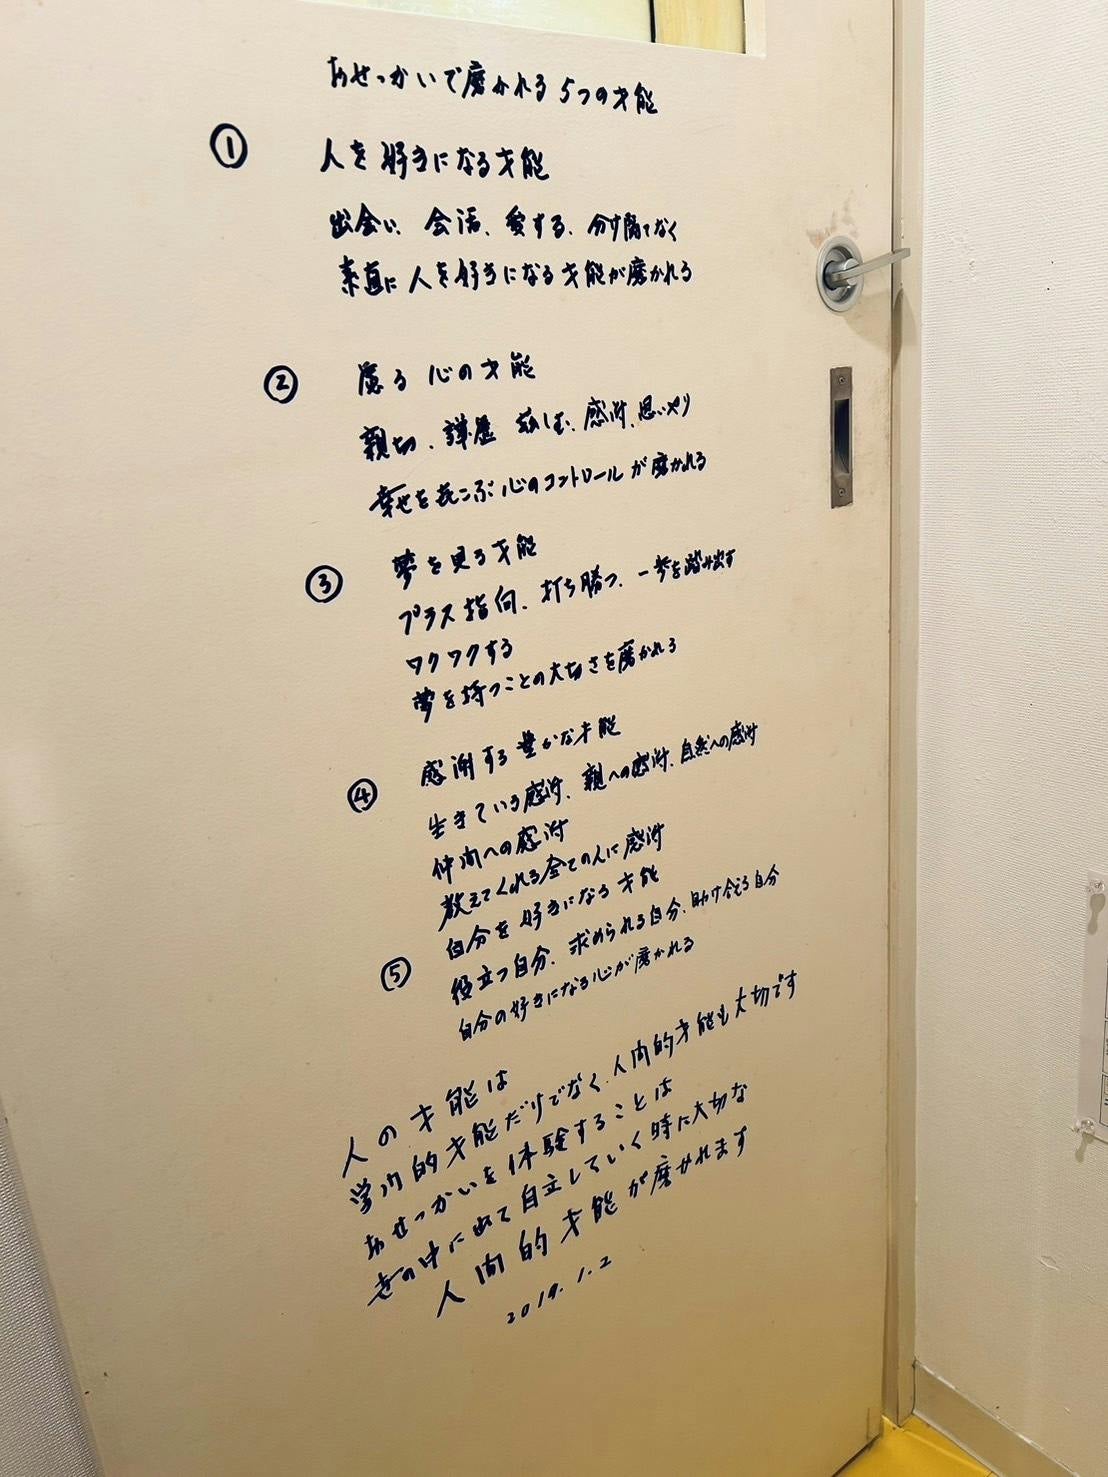 おせっかいで磨かれる5つの才能
① 人を好きになる才能
出会い、会話、愛する、分け隔てなく
素直に人を好きになる才能が磨かれる
② 慮る心の才能
親切、謙虚 慈しむ、感謝、思いやり
幸せをよろこぶ心のコントロールが磨かれる
③ 夢を見る才能
プラス指向、打ち勝つ、一歩を踏み出す
ワクワクする
夢を持つことの大切さを磨かれる
④ 感謝する豊かな才能
生きている感謝、親への感謝、自然への感謝
仲間への感謝
教えてくれる全ての人に感謝
⑤ 自分を好きになる才能
役立つ自分、求められる自分、助け合える自分
自分の好きになる心が磨かれる
人の才能は
学力的才能だけでなく、人間的才能も大切です
おせっかいを体験することは
世の中に出て自立していく時に大切な
人間的才能が磨かれます
2019.1.2